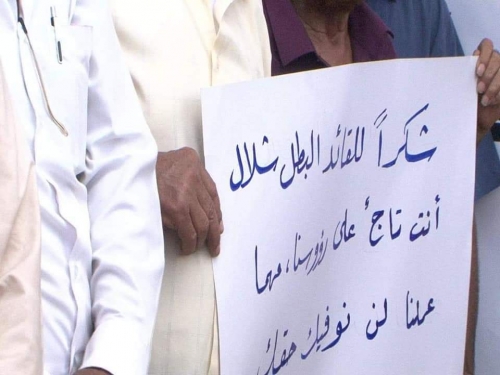 شكراً للقائد البطل شلال
أنت تاجٌ على رؤوسنا، مهما
عملنا لن نوفيك حقك